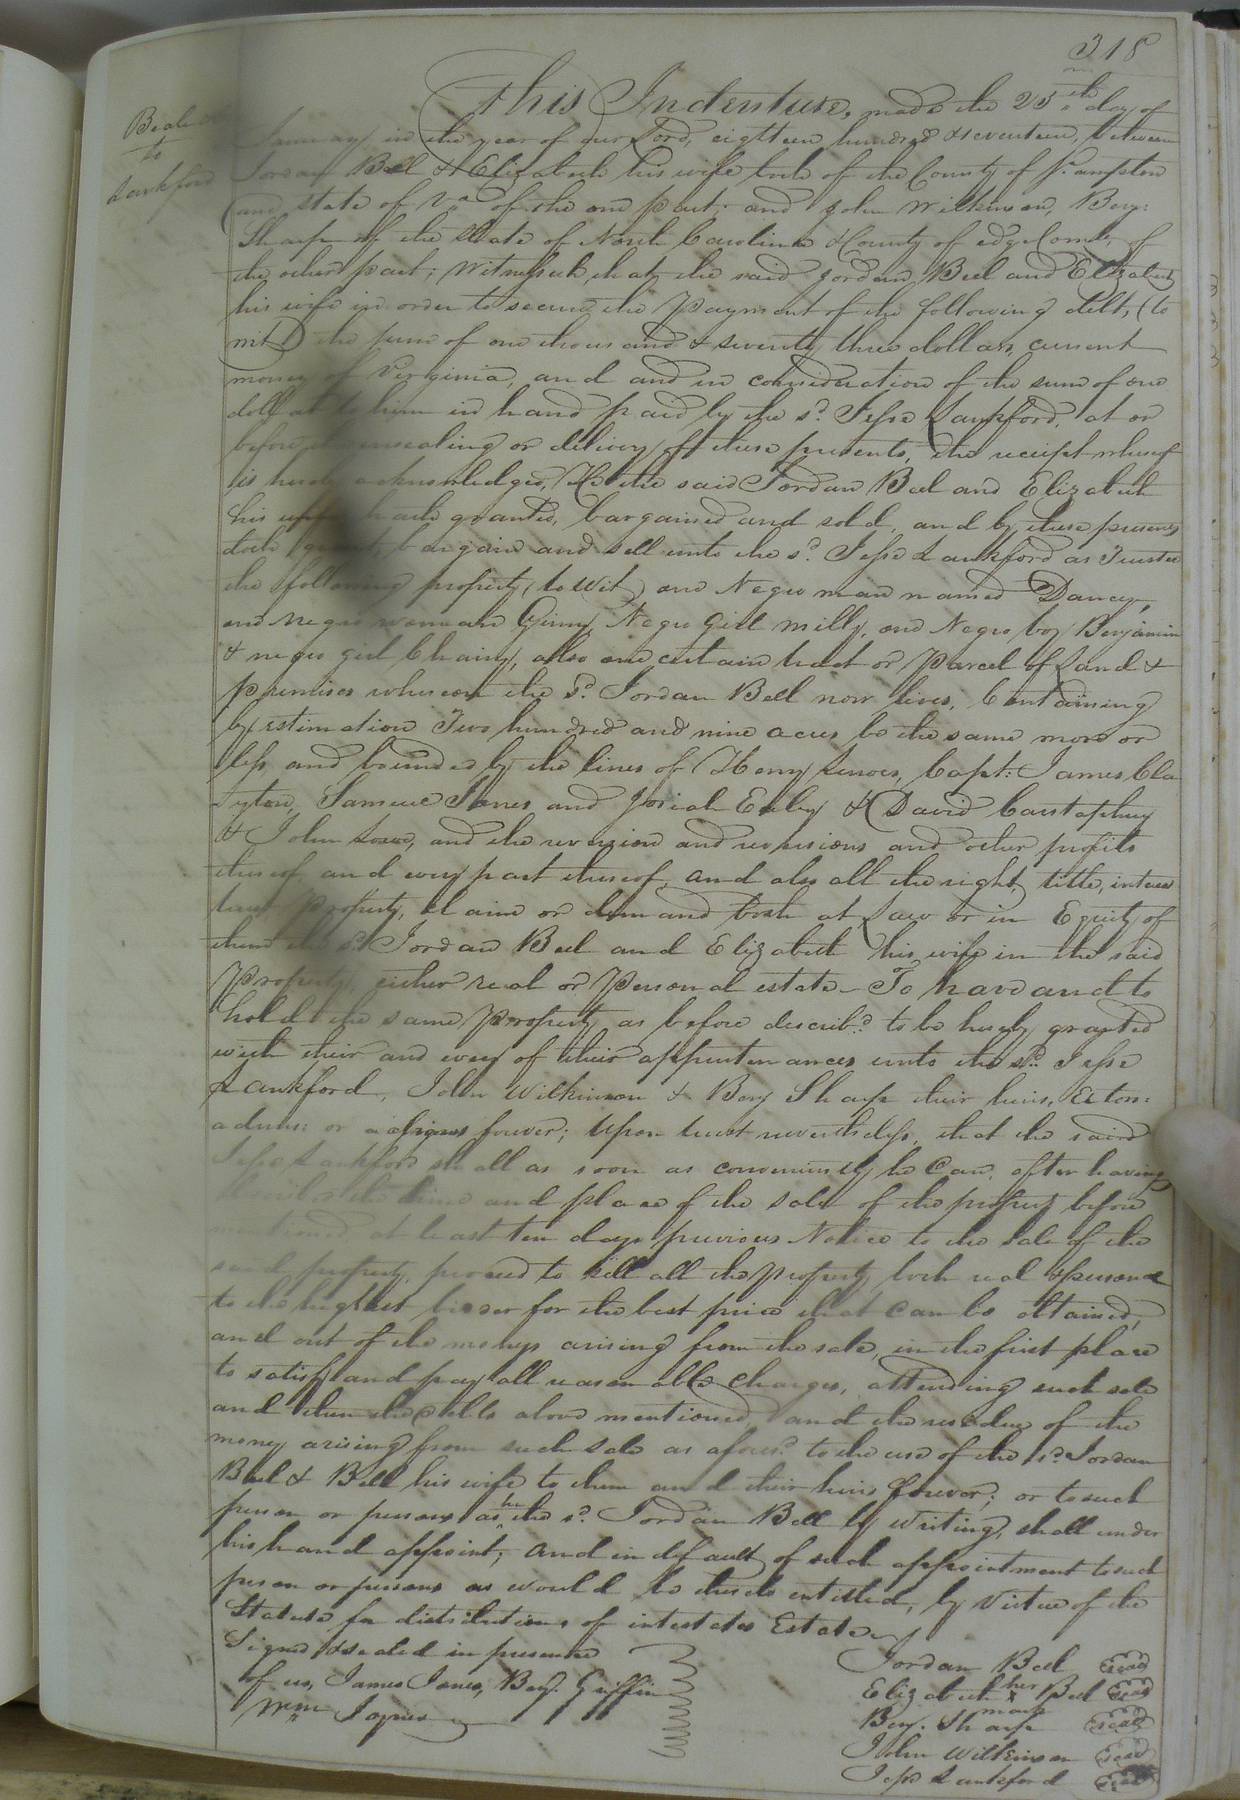 318
Bell &c
to
Lankford
This Indenture, made the 25th day of
January in the year of our Lord, eighteen hundred & seventeen, between
Jordan Bell & Elizabeth his wife both of the County of So.ampton
and state of Va. of the one part; and John Wilkinson, Benj:
Sharp of the State of North Carolina & County of edgeComb, of
the other part; Witnesseth, that, the said Jordan Bell and Elizabeth
his wife in order to secure the Payment of the following debt, (to
wit) the sum of one thousand & seventy three dollars, current
money of Virginia, and and in consideration of the sum of one
dollar to him in hand paid by the sd. Jesse Lankford, at or
before the ensealing or delivery of these presents, the receipt whereof
is hereby acknowledged, He the said Jordan Bell and Elizabeth
his wife hath granted, bargained and sold, and by these presents
doth grant, bargain and sell unto the sd. Jesse Lankford as Trustee
the following property (to wit) one Negro man named Dancey,
one negro woman Ginny, Negro Girl Milly, one Negro boy Benjamin
& negro girl Chainy, also one certain tract or parcel of Land &
premises whereon the sd. Jordan Bell now lives, Containing
by estimation Two hundred and nine acres be the same more or
less, and bounded by the lines of Henry Capt: James Cla
yton, Samuel Jones, and Josiah & David
& John and the reversion and reversions and other profits
thereof, and every part thereof, and also all the right, title, interest
Property, claim or demand both at Law or in Equity of
them the sd. Jordan Bell and Elizabeth his wife in the said
Property, either real or Personal estate - To have and to
hold the same Property as before describ'd to be hereby granted
with their and every of their appurtenances unto the sd. Jesse
Lankford, John Wilkinson & Benj Sharp their heirs, Extors:
adms: or assigns forever; Upon trust nevertheless, that the said
Jesse Lankford shall as soon as conveniently he Can, after having
the time and place of the sale of the property before
mentioned at least ten days previous Notice to the sale of the
said property, proceed to sell all the Property, both real & personal
to the highest bidder for the best price that Can be obtained,
and out of the moneys arising from the sale, in the first place
to satisfy and pay all reasonable Charges, attending such sale
and then the debts above mentioned, and the residue of the
money arising from such sale as afores'd to the use of the sd. Jordan
Bell & Bell his wife to them and their heirs forever; or to such
person or persons as he the sd. Jordan Bell by writing, shall under
his hand appoint; and in default of such appointment to such
person or persons as would be thereto entitled, by Virtue of the
Statute for distributions of intestates Estate
Signed & sealed in presence
of us, James Jones, Benj. Griffin
Wm Joyner
Jordan Bell (seal)
Elizabeth her x mark Bell (seal)
Benj. Sharp (seal)
John Wilkinson (seal)
Jesse Lankford (seal)